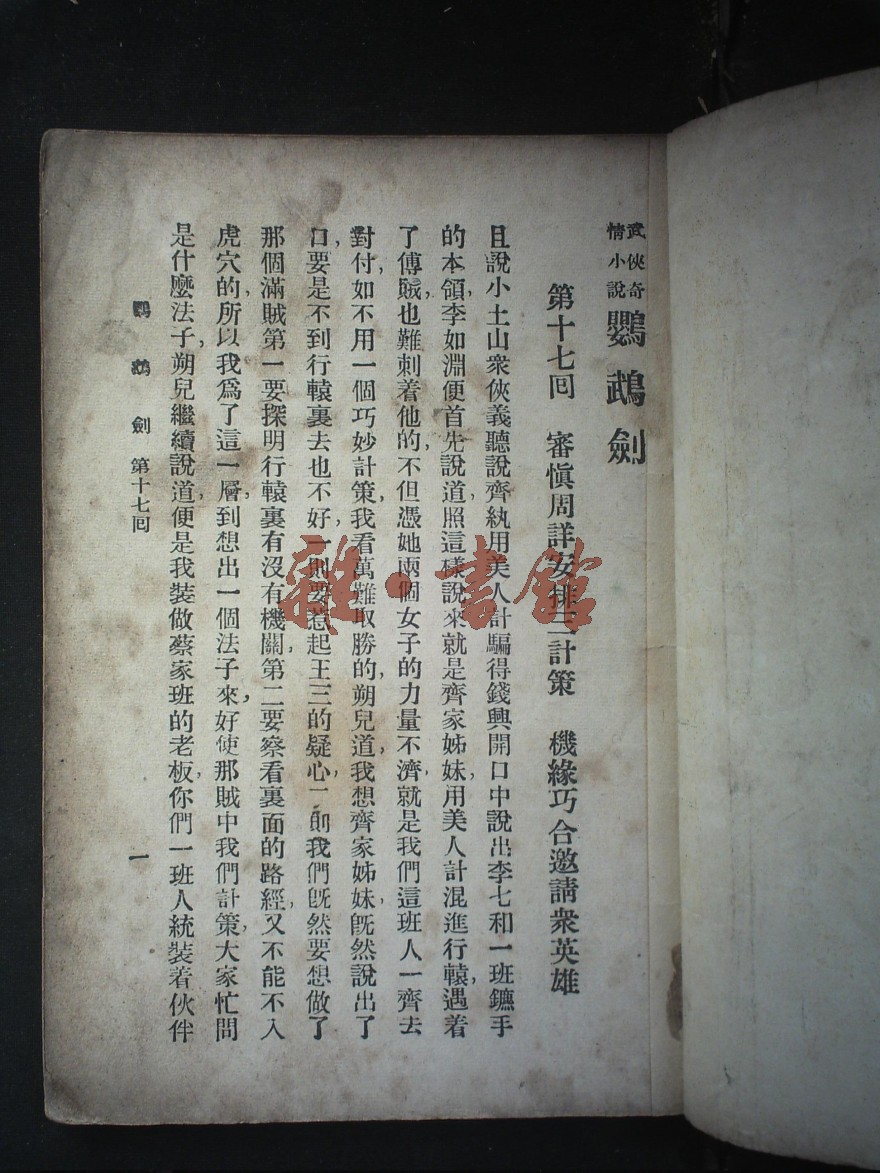 武俠奇情小說 鸚鵡劍
第十七回 審慎周詳安排三計策 機緣巧合邀請衆英雄
且說小土山衆俠義聽說齊紈用美人計騙得錢興開口中說出李七和一班鑣手
的本領李如淵便首先說道，照這樣說來就是齊家姊妹用美人計混進行轅，遇着
了傅賊，也難刺着他的，不但憑她兩個女子的力量不濟，就是我們這班人一齊去
對付，如不用一個巧妙計策，我看萬難取勝的，朔兒道，我想齊家姊妹，既然說出了
口，要是不到行轅裏去也不好，一則要惹起王三的疑心，二則我們既然要想做了
那個滿賊第一要探明行轅裏有沒有機關，第二要察看裏面的路經，又不能不入
虎穴的，所以我爲了這一層，到想出一個法子來，好使那賊中我們計策，大家忙問
是什麼法子，朔兒繼續說道，便是我裝做蔡家班的老板，你們一班人統裝着伙伴
鸚鵡劍 第十七回
一
雜·書館